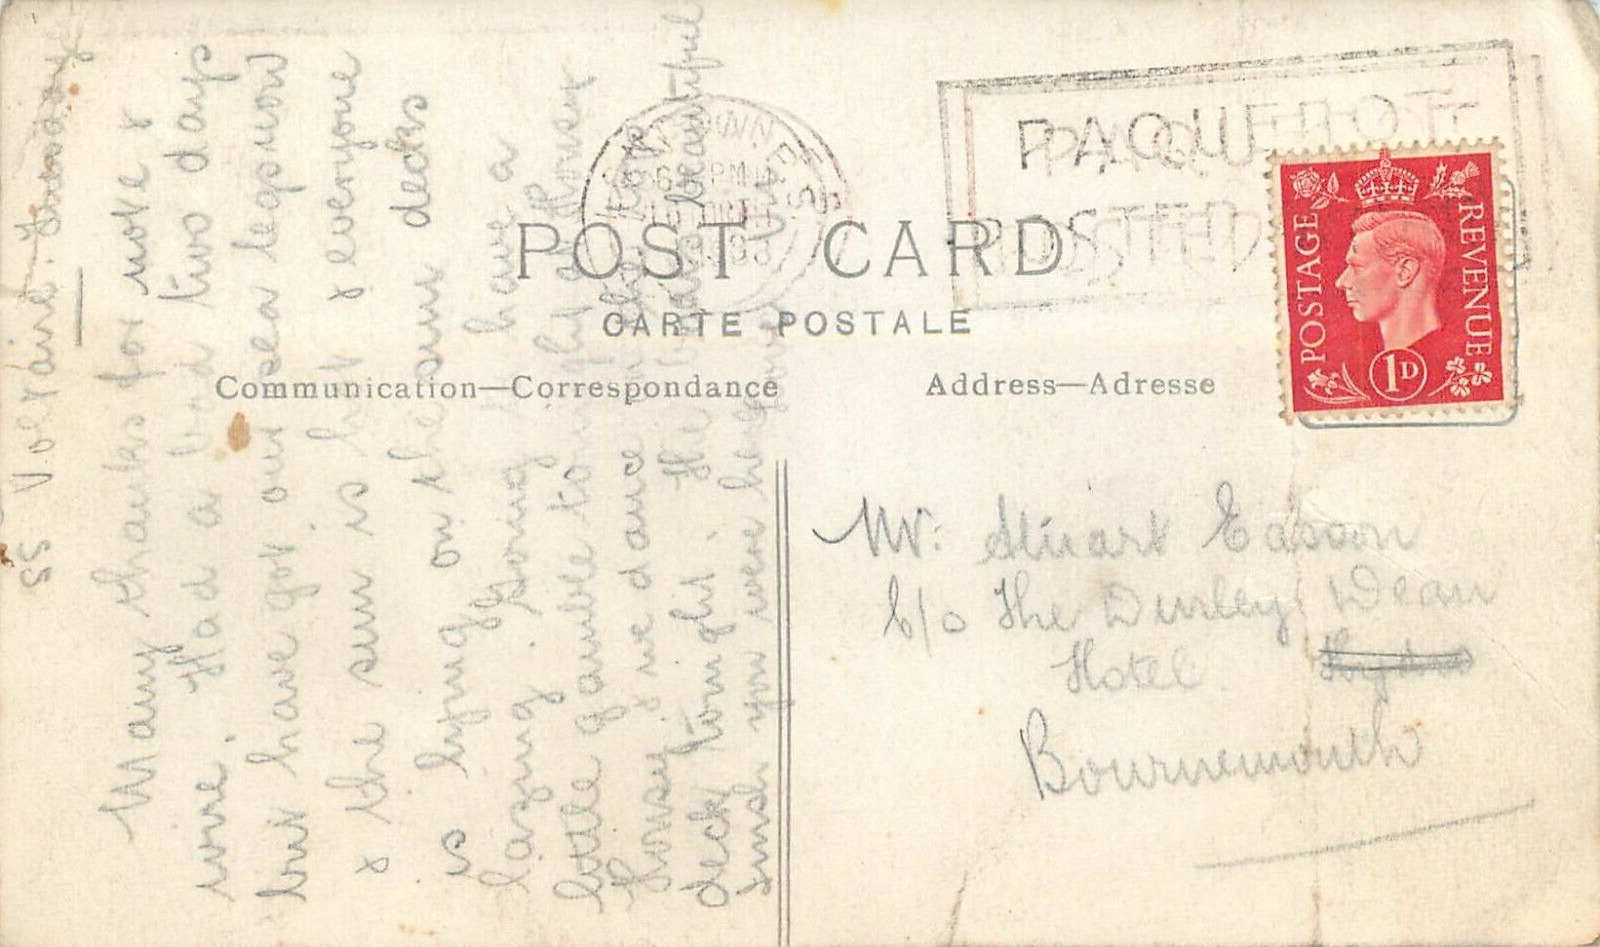 SS Voltaire. Tuesday
Many thanks for note &
wire. Had a bad two days
but have got our sea legs now
& the sun is hot & everyone
is lying on the sun decks
lazing. Going to have a
little gamble tonight at Housey
Housey & we dance on the top
deck tonight. The beautiful
wish you were here
POST CARD
CARTE POSTALE
Communication—Correspondance
Address—Adresse
PAQUEBOT
POSTED
POSTAGE
REVENUE
1D
Mr: Stuart Easson
C/o The Durley Dean
Hotel
Bournemouth